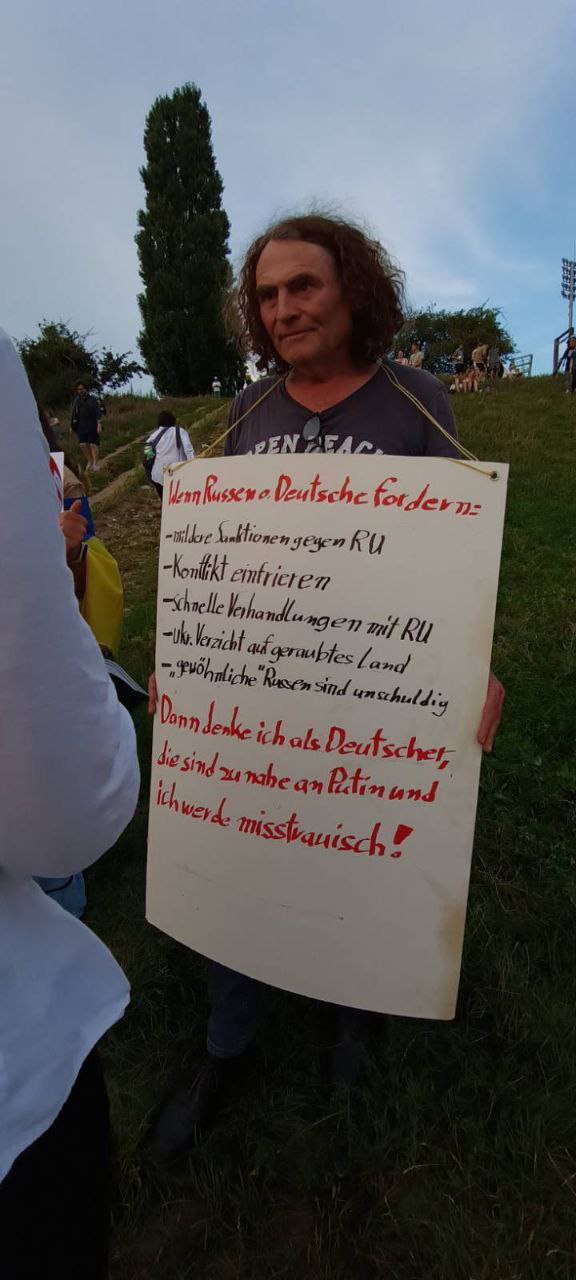 OPEN BEACH
Wenn Russen o. Deutsche fordern:
- mildere Sanktionen gegen RU
- Konflikt einfrieren
- schnelle Verhandlungen mit RU
- ukr. Verzicht auf geraubtes Land
- „gewöhnliche" Russen sind unschuldig
Dann denke ich als Deutscher,
die sind zu nahe an Putin und
ich werde misstrauisch!